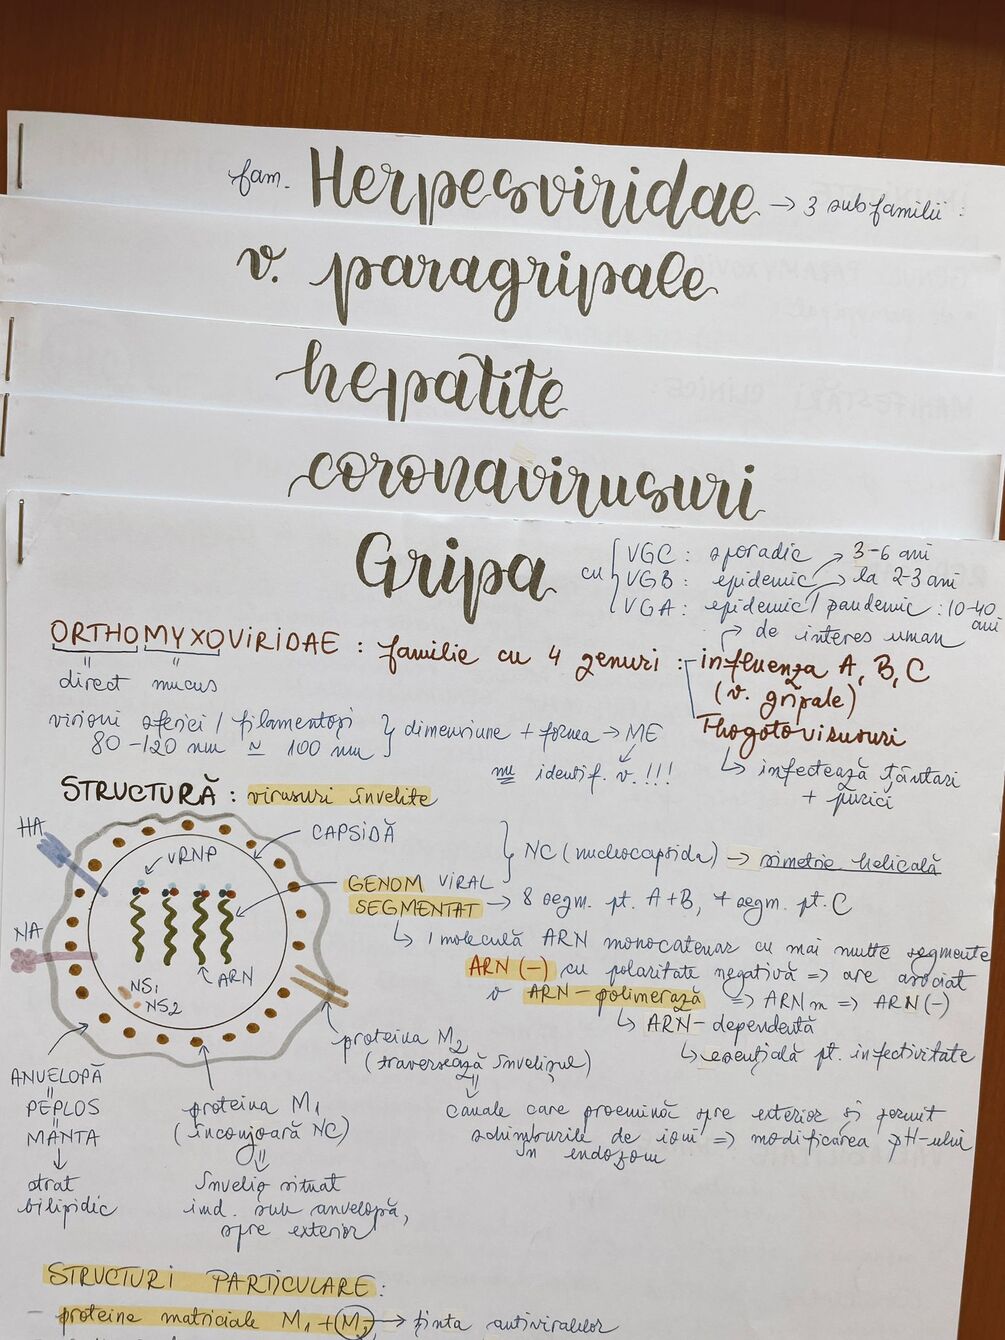 fam. Herpesviridae → 3 subfamilii :
v. paragripale
hepatite
coronavirusuri
Gripa
cu { VGC : sporadic → 3-6 ani
VGB : epidemic → la 2-3 ani
VGA : epidemic / pandemic : 10-40 ani
→ de interes uman
ORTHOMYXOVIRIDAE : familie cu 4 genuri : influenza A, B, C
(v. gripale)
Thogotovirusuri
↳ infectează țântari
+ purici
direct mucus
virioni sferici / filamentoși
80-120 nm ≃ 100 nm
} dimensiune + forma → ME
nu identif. v. !!!
STRUCTURĂ : virusuri învelite
HA
vRNP
NA
NS1
NS2
ARN
CAPSIDĂ
GENOM VIRAL
SEGMENTAT → 8 segm. pt. A+B, 7 segm. pt. C
} NC (nucleocapsida) → simetrie helicală
↳ 1 moleculă ARN monocatenar cu mai multe segmente
ARN (-) cu polaritate negativă => are asociat
o ARN-polimerază => ARNm => ARN(-)
↳ ARN-dependentă
↳ esențială pt. infectivitate
proteina M2
(traversează învelișul)
canale care proemină spre exterior și permit
schimburile de ioni => modificarea pH-ului
în endozom
ANVELOPĂ
=
PEPLOS
=
MANTA
↓
strat
bilipidic
proteina M1
(înconjoară NC)
înveliș situat
imd. sub anvelopă,
spre exterior
STRUCTURI PARTICULARE :
- proteine matriciale M1 + M2 → ținta antiviralelor